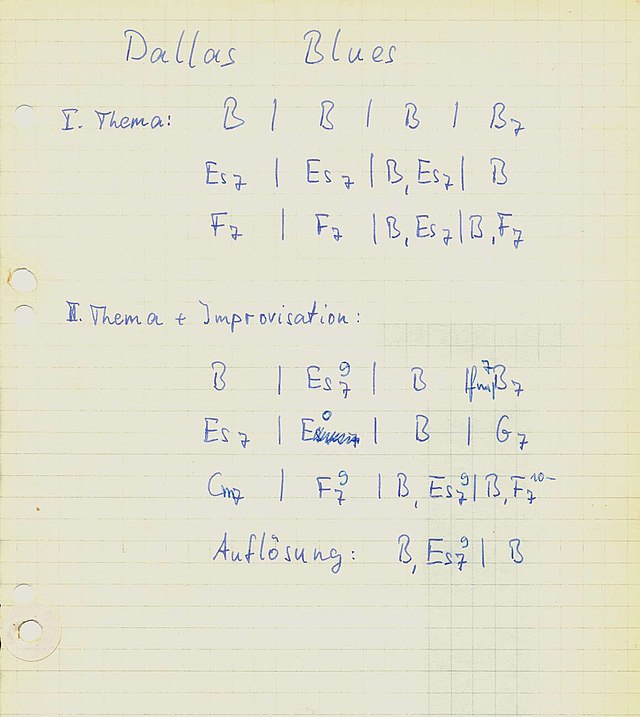 Dallas Blues
I. Thema: B | B | B | B7
Es7 | Es7 | B, Es7 | B
F7 | F7 | B, Es7 | B, F7
II. Thema + Improvisation:
B | Es7 9 | B | fm7 B7
Es7 | E0 | B | G7
Cm7 | F7 9 | B, Es7 9 | B, F7 10-
Auflösung: B, Es7 9 | B